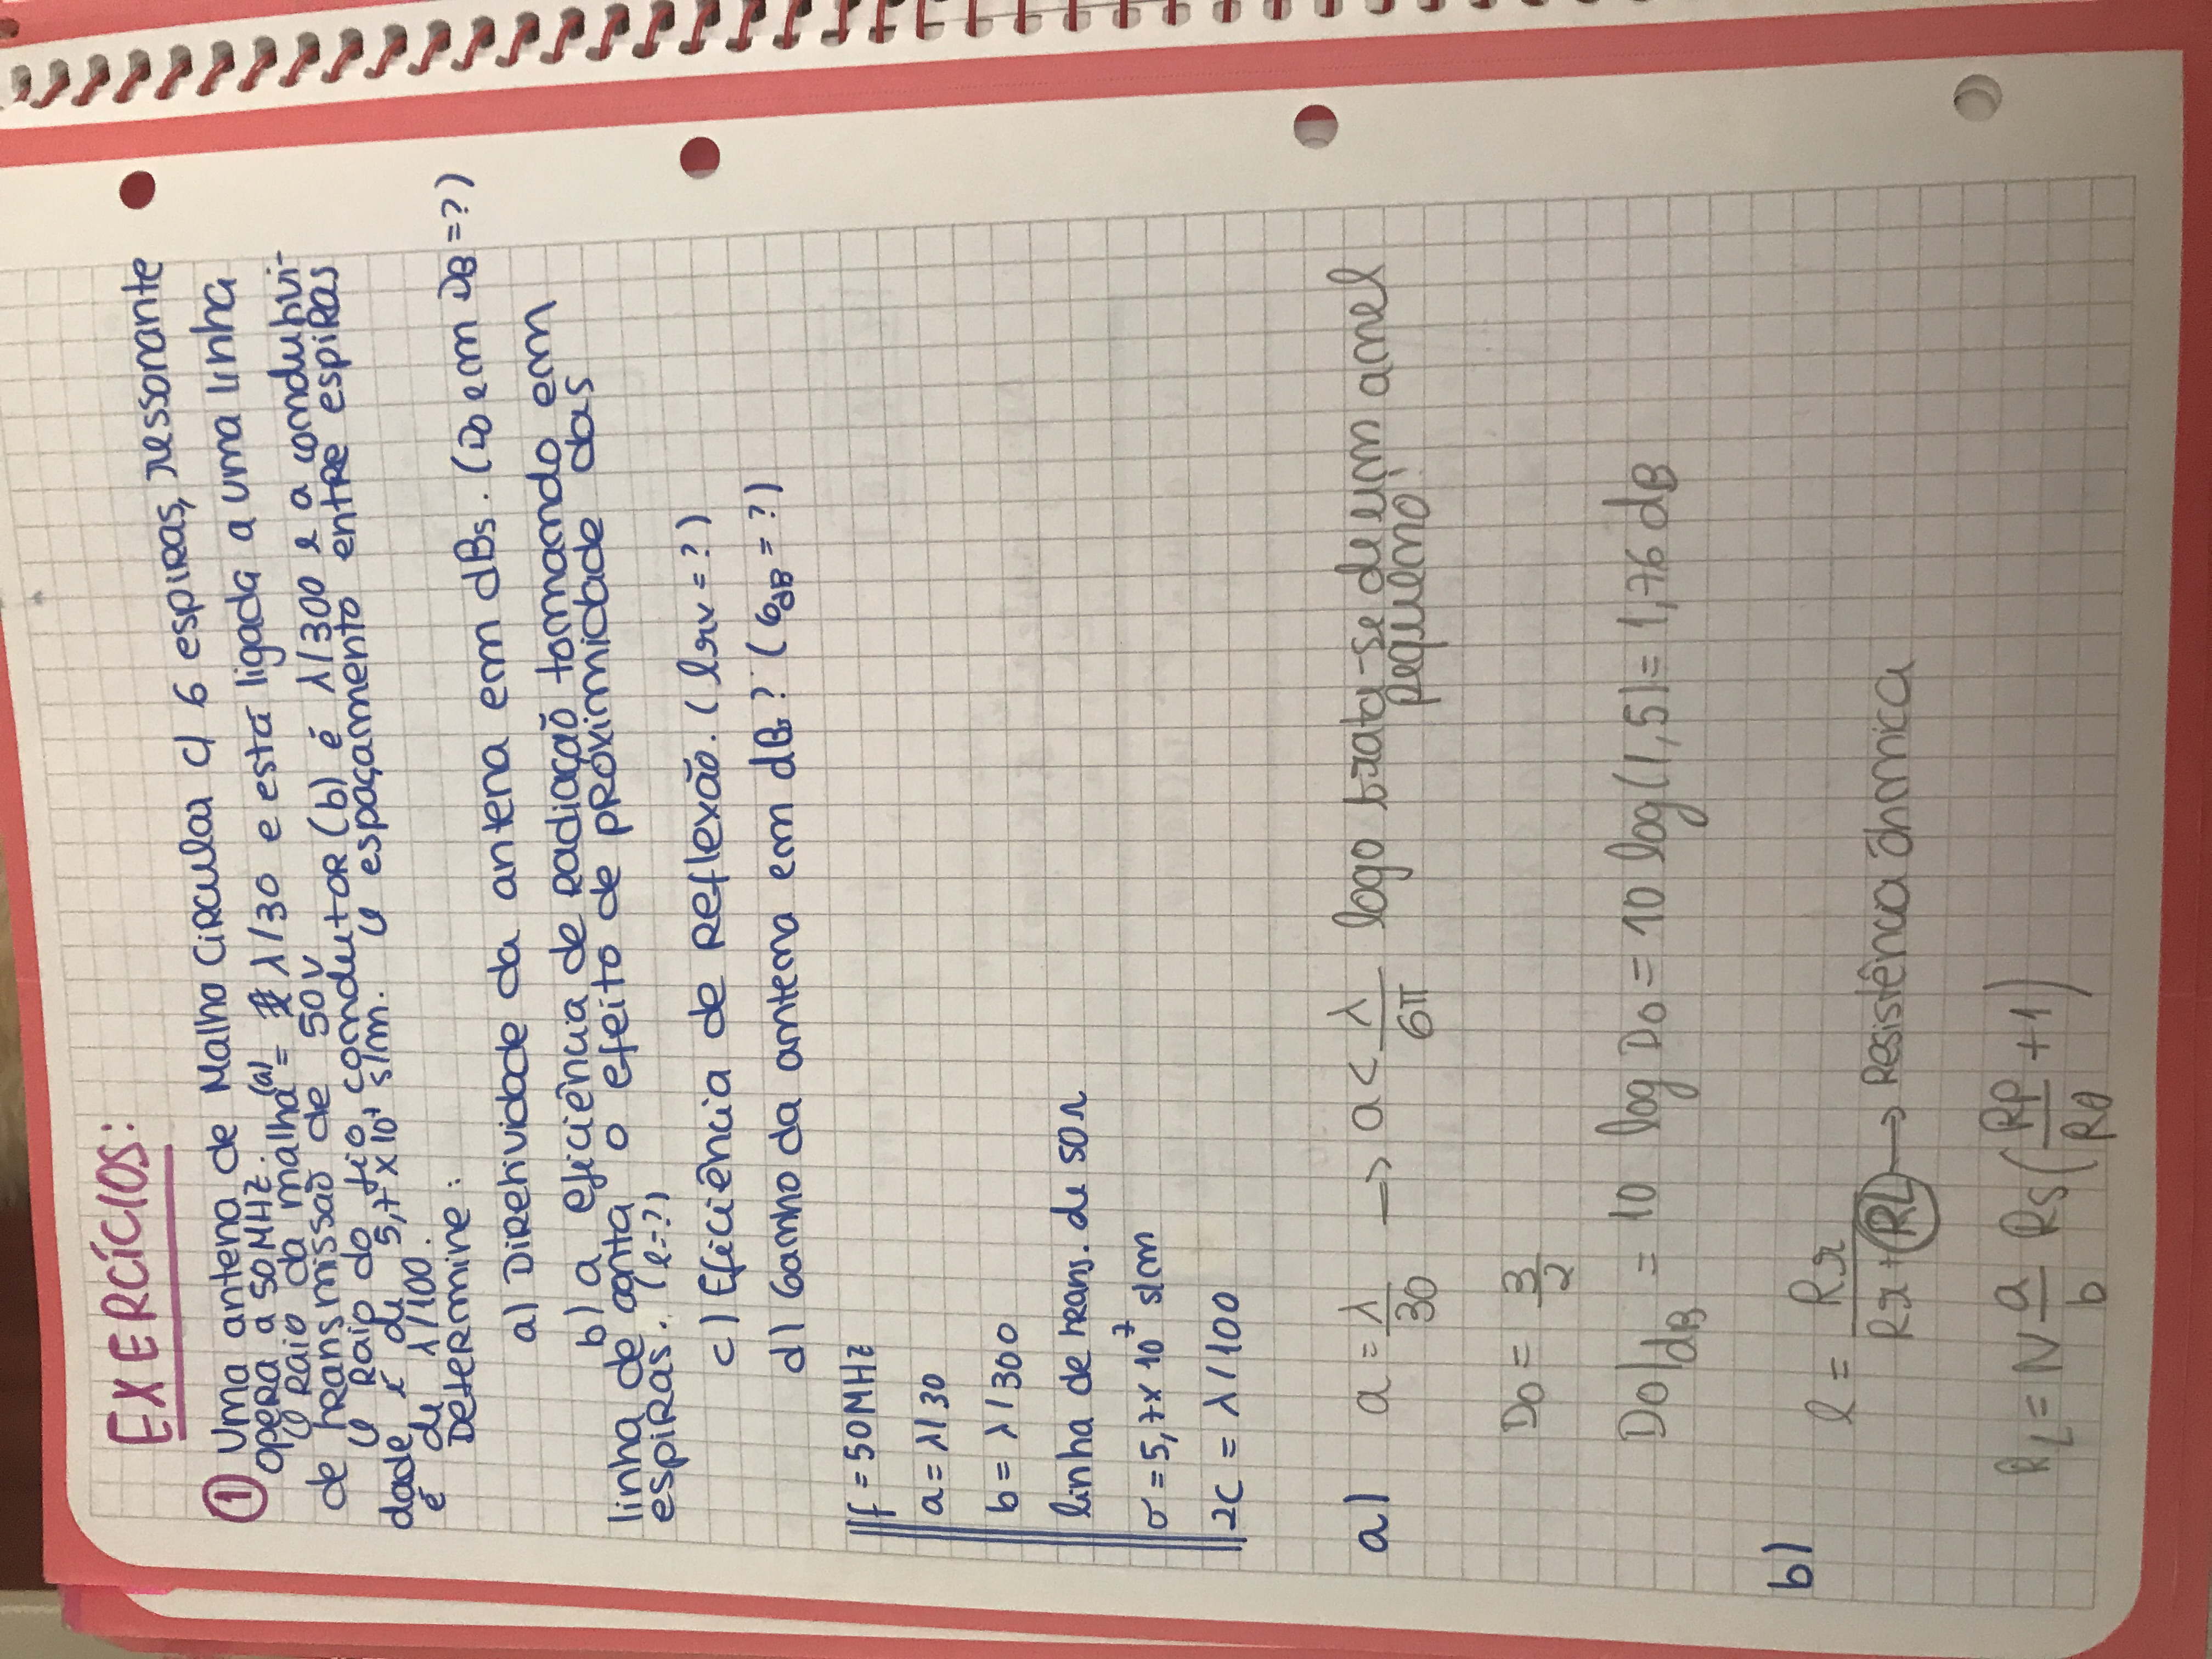 EXERCÍCIOS:
① Uma antena de Malha Circular c/ 6 espiras, ressonante
opera a 50MHz.
O Raio da malha (a) = λ/30 e está ligada a uma linha
de transmissão de 50v
O Raio do fio condutor (b) é λ/300 e a condutivi-
dade é de 5,7 x 10⁷ s/m. O espaçamento entre espiras
é de λ/100.
Determine:
a) Diretividade da antena em dBs. (Do em DB = ?)
b) a eficiência de radiação tomando em
linha de conta o efeito de próximidade das
espiras. (e=?)
c) Eficiência de Reflexão. (erv = ?)
d) Ganho da antena em dBs? (GdB = ?)
f = 50MHz
a = λ/30
b = λ/300
linha de trans. de 50Ω
σ = 5,7x 10⁷ s/m
2C = λ/100
a) a = λ/30 → a < λ/6π logo trata-se de um anel
pequeno!
Do = 3/2
Do|dB = 10 log Do = 10 log(1,5) = 1,76 dB
b)
e = Rr/(Rr + RL) → Resistência óhmica
RL = N a/b Rs (Rp/Ro + 1)